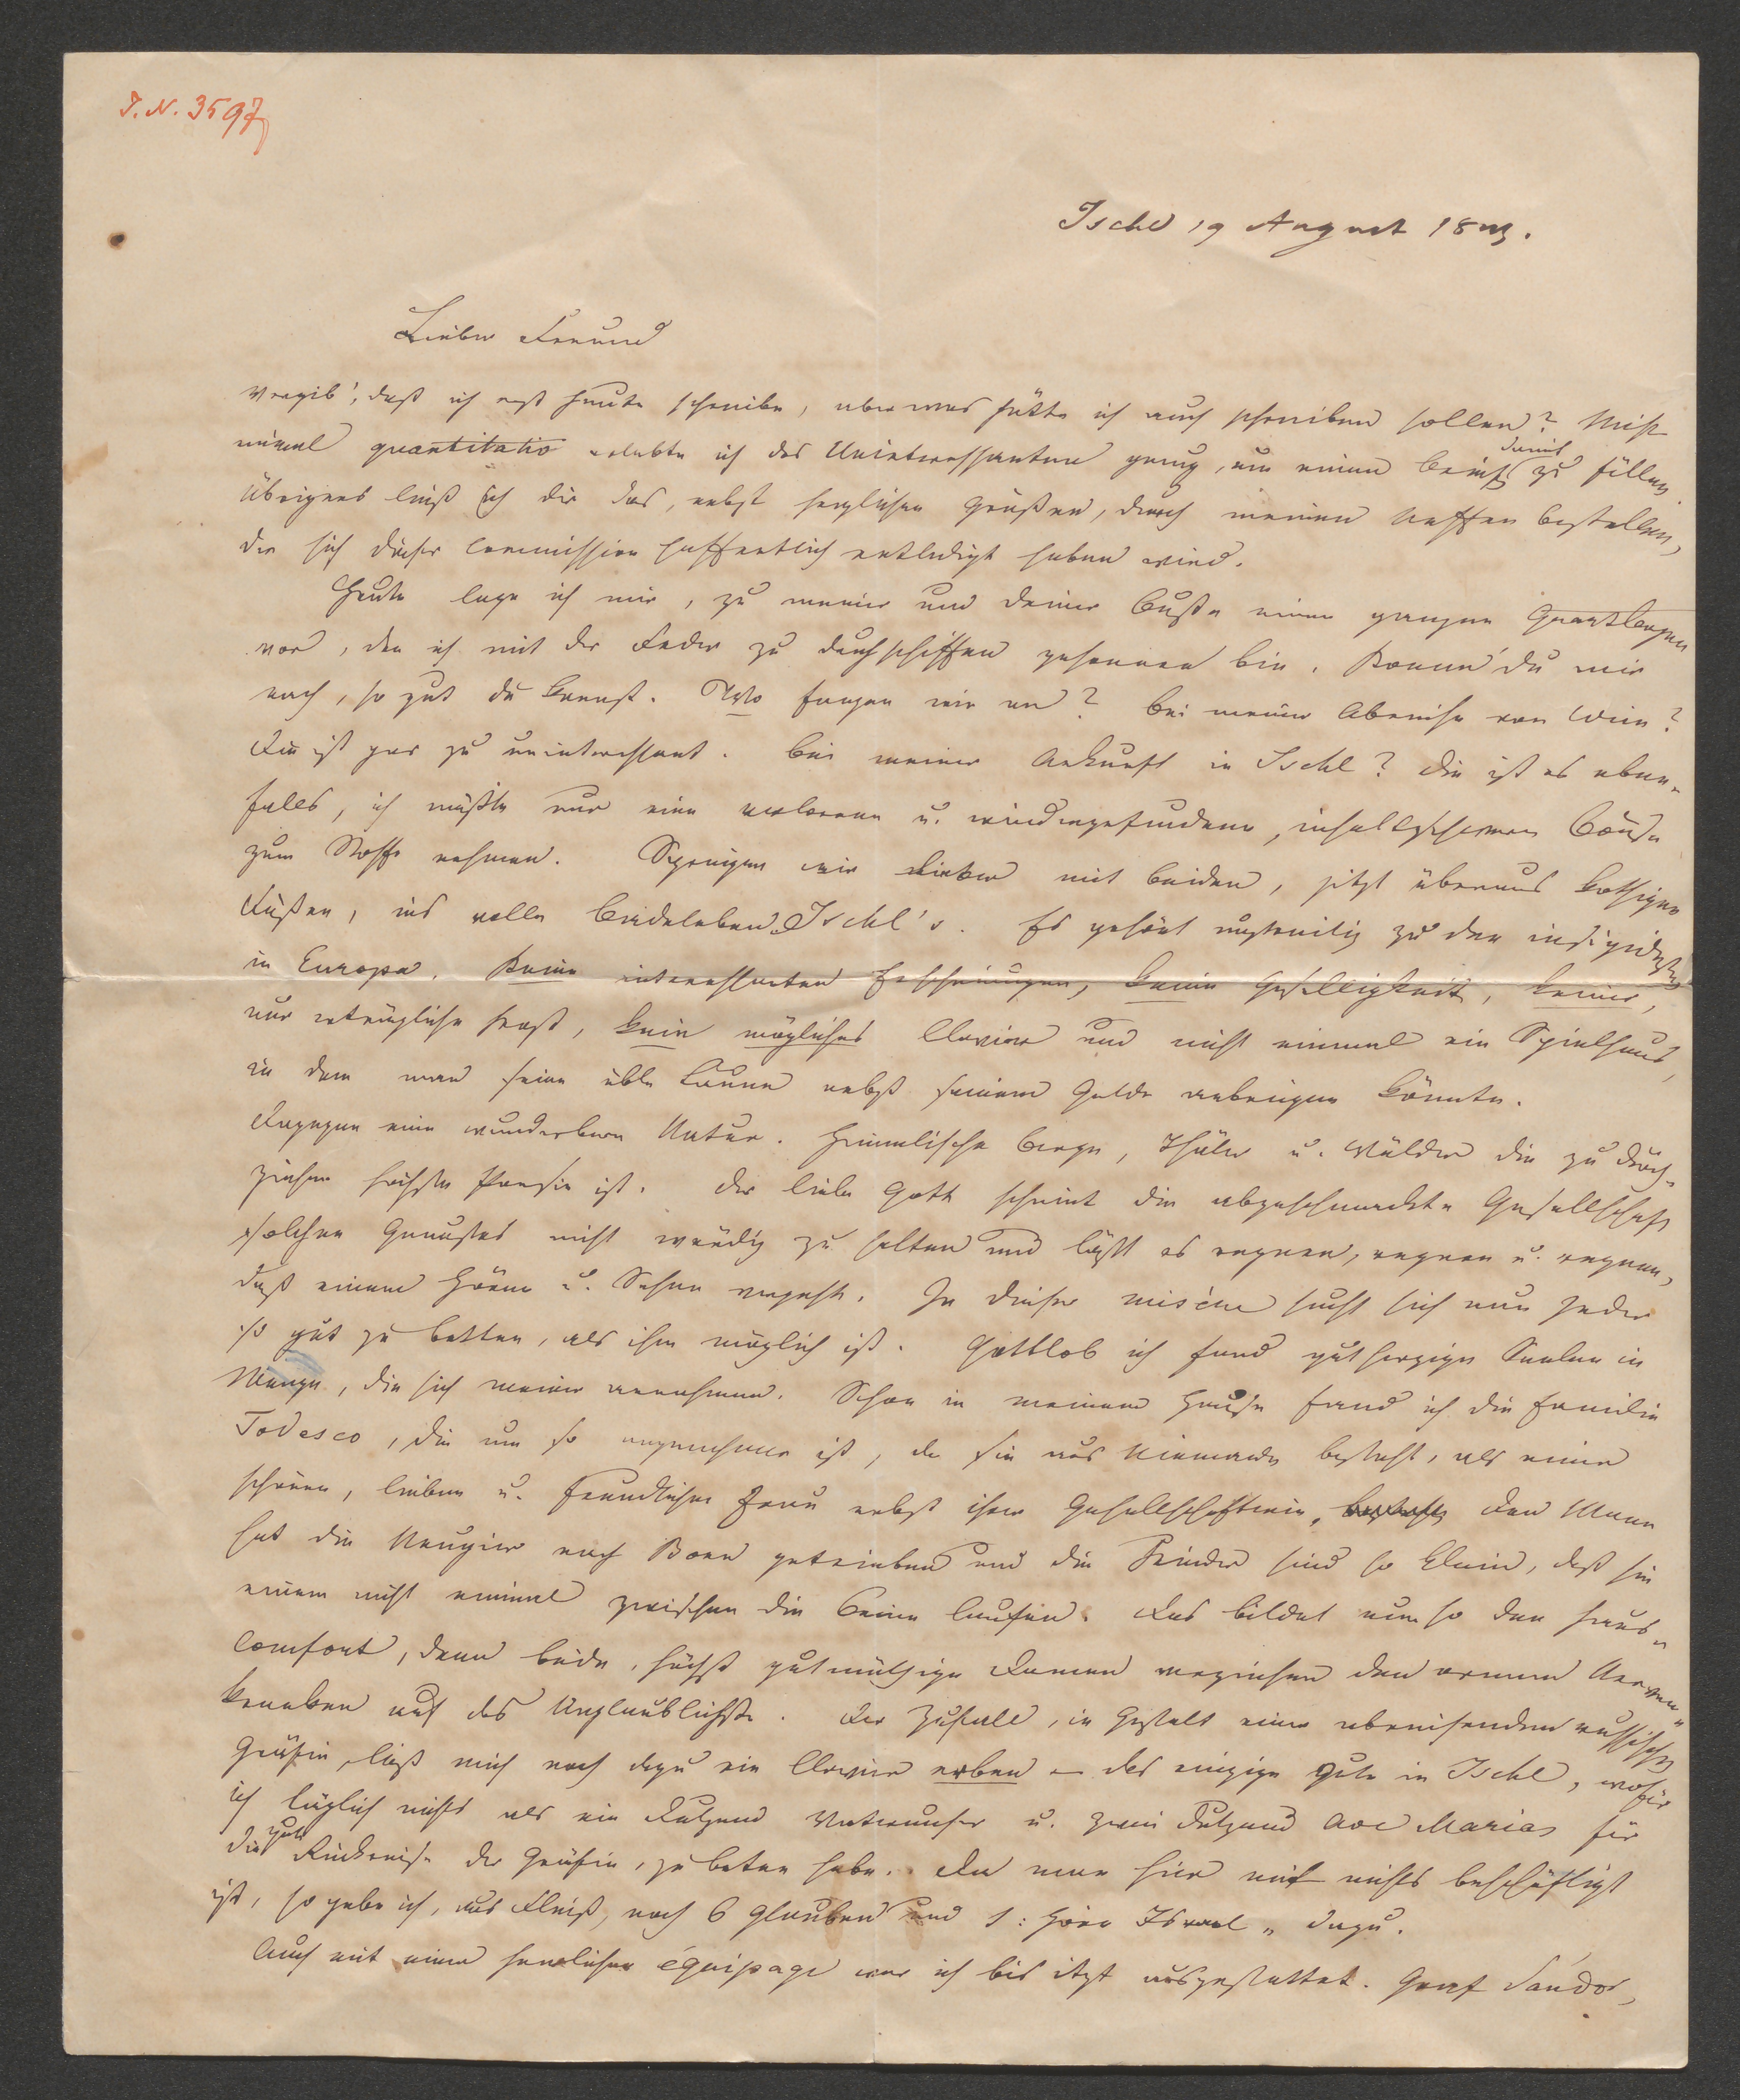 I.N. 3597
Ischl 19 August 1845.
Lieber Freund
Vergib', daß ich erst heute schreibe, aber was hätte ich auch schreiben sollen? Nicht
einmal quantitativ erlebte ich des Uninteressanten genug, um einen Brief damit zu füllen.
Übrigens ließ ich dir das, nebst herzlichen Grüßen, durch meinen Neffen bestellen,
der sich dieser Commission hoffentlich entledigt haben wird.
Heute lege ich mir, zu meiner und deiner Buße einen ganzen Quartbogen
vor, den ich mit der Feder zu durchschiffen gesonnen bin. Komm' du mir
nach, so gut du kannst. Wo fangen wir an? Bei meiner Abreise von Wien?
Die ist gar zu uninteressant. Bei meiner Ankunft in Ischl? Die ist es eben-
falls, ich müßte nur eine verlorene u. wiedergefundene, Börse
zum Stoffe nehmen. Springen wir lieber mit beiden, jetzt überaus kothigen
Füßen, ins volle Badeleben Ischl's. Es gehört unstreitig zu den insipidesten
in Europa. Keine interessanten Erscheinungen, keine Geselligkeit, keine,
nur erträgliche Kost, kein mögliches Clavier und nicht einmal ein Spielhaus,
in dem man seine üble Laune nebst seinem Gelde anbringen könnte.
Dagegen eine wunderbare Natur. Himmlische Berge, Thäler u. Wälder die zu durch-
ziehen höchste Poesie ist. Der liebe Gott scheint die abgeschmackte Gesellschaft
solchen Genusses nicht würdig zu halten und läßt es regnen, regnen u. regnen,
daß einem Hören u. Sehen vergeht. In dieser misère sucht sich nun Jeder
so gut zu betten, als ihm möglich ist. Gottlob ich fand gutherzige Seelen in
Menge, die sich meiner annehmen. Schon in meinem Hause fand ich die Familie
Todesco, die um so angenehmer ist, da sie aus Niemanden besteht, als einer
schönen, lieben u. freundlichen Frau nebst ihrer Gesellschafterin, Den Mann
hat die Neugier nach Bonn getrieben und die Kinder sind so klein, daß sie
einem nicht einmal zwischen die Beine laufen. Das bildet nun so den Haus-
comfort, denn beide, höchst gutmüthige Damen verziehen den armen Nerven-
knaben auf das Unglaublichste. Der Zufall, in Gestalt einer abreisenden russischen
Gräfin, ließ mich noch dazu ein Clavier erben – das einzige gute in Ischl, wofür
ich täglich nichts als ein Dutzend Vaterunser u. zwei Dutzend Ave Marias für
die gute Rückreise der Gräfin, zu beten habe. Da man hier mit nichts beschäftigt
ist, so gebe ich, aus Fleiß, noch 6 Glauben und 1: Höre Israel " dazu.
Auch mit einer herrlichen équipage war ich bis itzt ausgestattet. Graf Sándor,